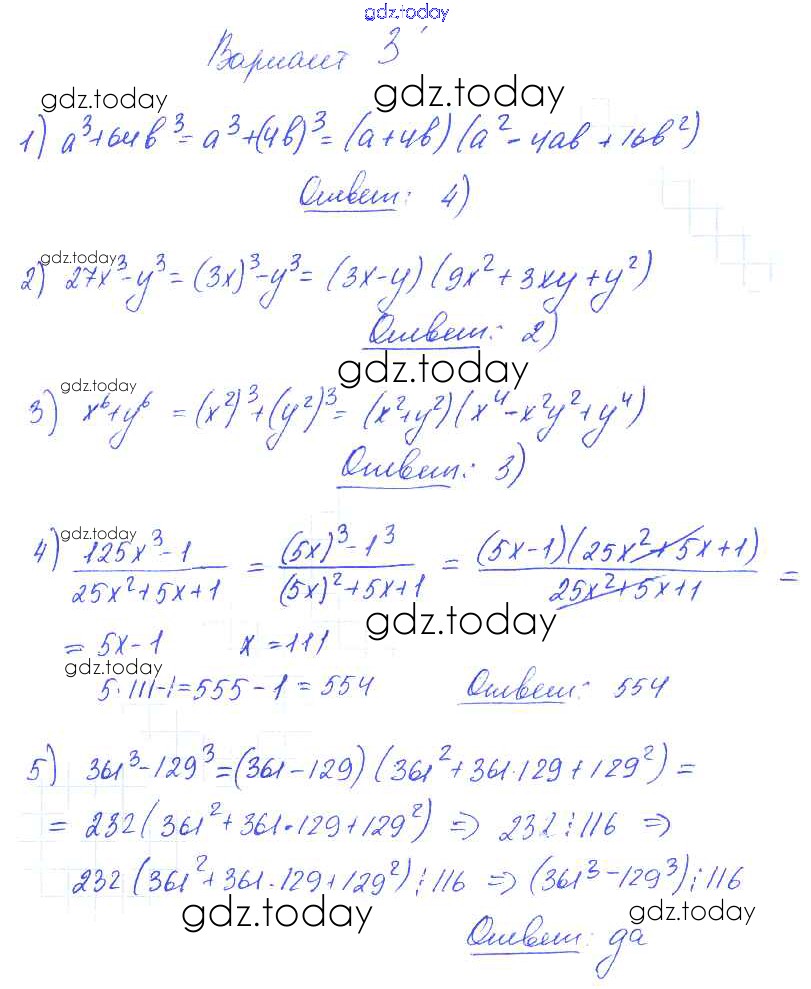 gdz.today
Вариант 3
gdz.today gdz.today
1) a³+64b³ = a³+(4b)³ = (a+4b)(a²-4ab+16b²)
Ответ: 4)
gdz.today
2) 27x³-y³ = (3x)³-y³ = (3x-y)(9x²+3xy+y²)
Ответ: 2)
gdz.today
gdz.today
3) x⁶+y⁶ = (x²)³+(y²)³ = (x²+y²)(x⁴-x²y²+y⁴)
Ответ: 3)
gdz.today
4) (125x³-1)/(25x²+5x+1) = ((5x)³-1³)/((5x)²+5x+1) = ((5x-1)(25x²+5x+1))/(25x²+5x+1) =
gdz.today
= 5x-1 x=111
gdz.today
5·111-1=555-1=554 Ответ: 554
5) 361³-129³=(361-129)(361²+361·129+129²)=
= 232(361²+361·129+129²) ⇒ 232⋮116 ⇒
232(361²+361·129+129²)⋮116 ⇒ (361³-129³)⋮116
gdz.today gdz.today
Ответ: да
gdz.today